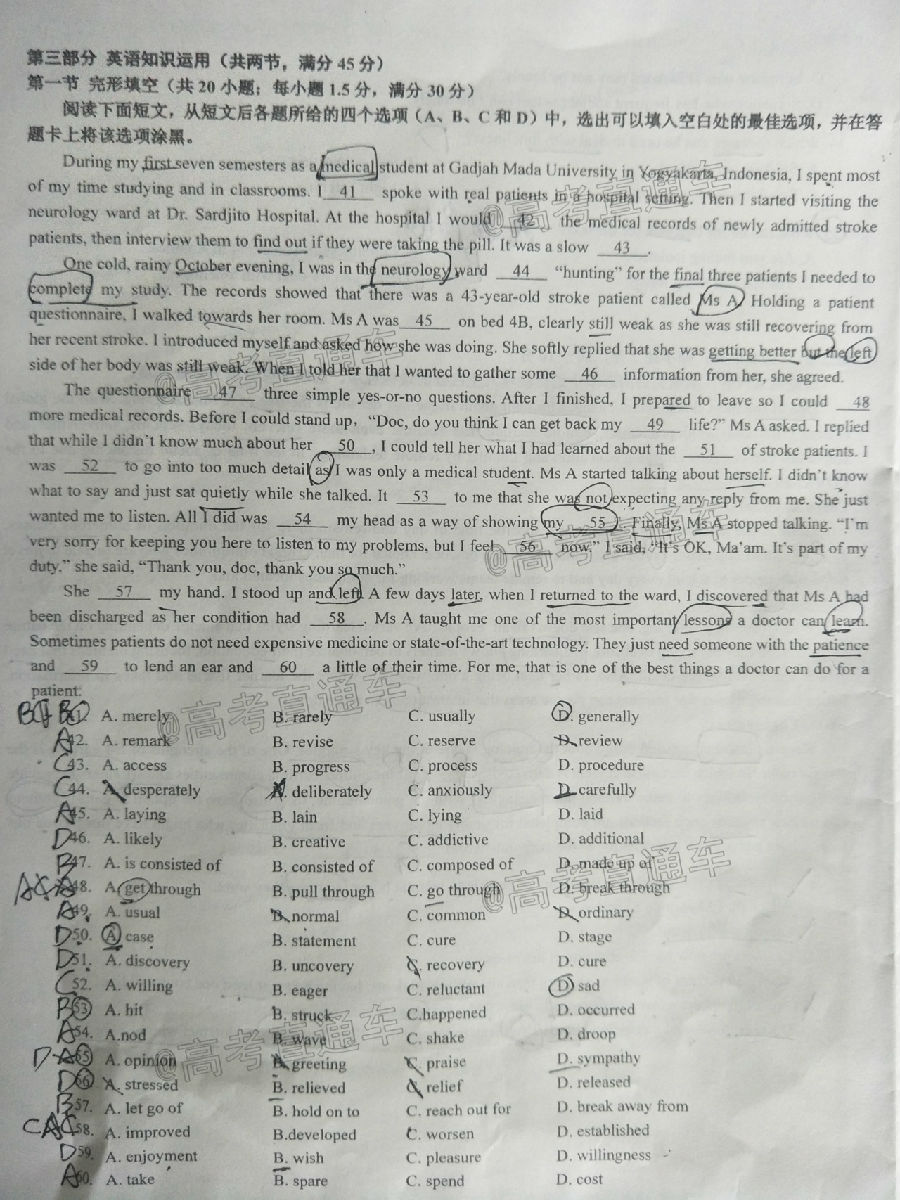 第三部分 英语知识运用（共两节，满分 45 分）
第一节 完形填空（共 20 小题；每小题 1.5 分，满分 30 分）
阅读下面短文，从短文后各题所给的四个选项（A、B、C 和 D）中，选出可以填入空白处的最佳选项，并在答
题卡上将该选项涂黑。
During my first seven semesters as a medical student at Gadjah Mada University in Yogyakarta, Indonesia, I spent most
of my time studying and in classrooms. I 41 spoke with real patients in a hospital setting. Then I started visiting the
neurology ward at Dr. Sardjito Hospital. At the hospital I would 42 the medical records of newly admitted stroke
patients, then interview them to find out if they were taking the pill. It was a slow 43 .
One cold, rainy October evening, I was in the neurology ward 44 “hunting” for the final three patients I needed to
complete my study. The records showed that there was a 43-year-old stroke patient called Ms A. Holding a patient
questionnaire, I walked towards her room. Ms A was 45 on bed 4B, clearly still weak as she was still recovering from
her recent stroke. I introduced myself and asked how she was doing. She softly replied that she was getting better but the left
side of her body was still weak. When I told her that I wanted to gather some 46 information from her, she agreed.
The questionnaire 47 three simple yes-or-no questions. After I finished, I prepared to leave so I could 48
more medical records. Before I could stand up, “Doc, do you think I can get back my 49 life?” Ms A asked. I replied
that while I didn’t know much about her 50 , I could tell her what I had learned about the 51 of stroke patients. I
was 52 to go into too much detail as I was only a medical student. Ms A started talking about herself. I didn’t know
what to say and just sat quietly while she talked. It 53 to me that she was not expecting any reply from me. She just
wanted me to listen. All I did was 54 my head as a way of showing my 55 . Finally, Ms A stopped talking. “I’m
very sorry for keeping you here to listen to my problems, but I feel 56 now.” I said, “It’s OK, Ma’am. It’s part of my
duty.” she said, “Thank you, doc, thank you so much.”
She 57 my hand. I stood up and left. A few days later, when I returned to the ward, I discovered that Ms A had
been discharged as her condition had 58 . Ms A taught me one of the most important lessons a doctor can learn.
Sometimes patients do not need expensive medicine or state-of-the-art technology. They just need someone with the patience
and 59 to lend an ear and 60 a little of their time. For me, that is one of the best things a doctor can do for a
patient.
41. A. merely B. rarely C. usually D. generally
A 42. A. remark B. revise C. reserve D. review
C 43. A. access B. progress C. process D. procedure
C 44. A. desperately B. deliberately C. anxiously D. carefully
A 45. A. laying B. lain C. lying D. laid
D 46. A. likely B. creative C. addictive D. additional
B 47. A. is consisted of B. consisted of C. composed of D. made up of
48. A. get through B. pull through C. go through D. break through
A 49. A. usual B. normal C. common D. ordinary
D 50. A. case B. statement C. cure D. stage
D 51. A. discovery B. uncovery C. recovery D. cure
C 52. A. willing B. eager C. reluctant D. sad
B 53. A. hit B. struck C.happened D. occurred
A 54. A.nod B. wave C. shake D. droop
55. A. opinion B. greeting C. praise D. sympathy
D 56. A. stressed B. relieved C. relief D. released
B 57. A. let go of B. hold on to C. reach out for D. break away from
58. A. improved B.developed C. worsen D. established
D 59. A. enjoyment B. wish C. pleasure D. willingness
A 60. A. take B. spare C. spend D. cost
@高考直通车
@高考直通车
@高考直通车
@高考直通车
@高考直通车
@高考直通车